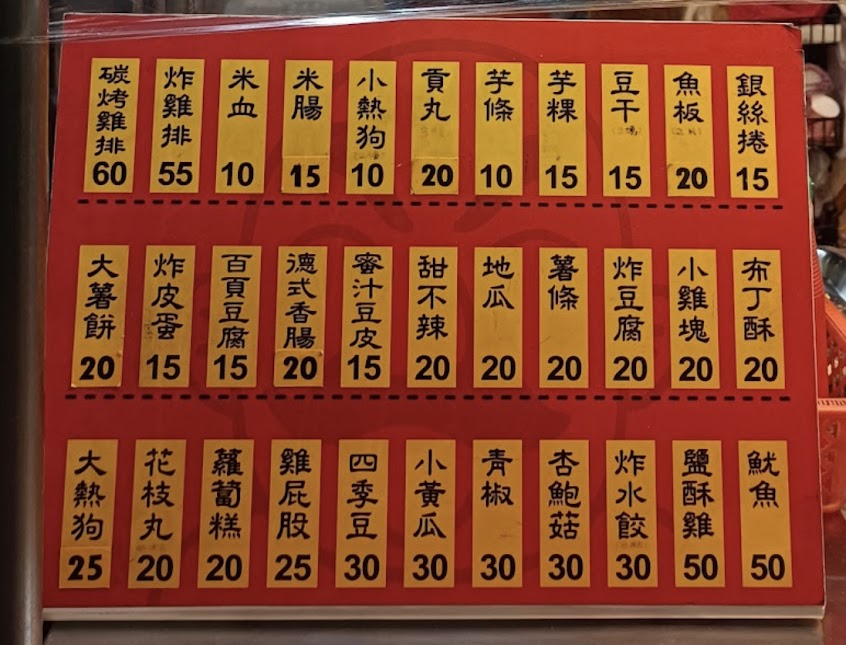 碳烤雞排 60
炸雞排 55
米血 10
米腸 15
小熱狗 10
貢丸 20
芋條 10
芋粿 15
豆干 15
魚板 20
銀絲捲 15
大薯餅 20
炸皮蛋 15
百頁豆腐 15
德式香腸 20
蜜汁豆皮 15
甜不辣 20
地瓜 20
薯條 20
炸豆腐 20
小雞塊 20
布丁酥 20
大熱狗 25
花枝丸 20
蘿蔔糕 20
雞屁股 25
四季豆 30
小黃瓜 30
青椒 30
杏鮑菇 30
炸水餃 30
鹽酥雞 50
魷魚 50